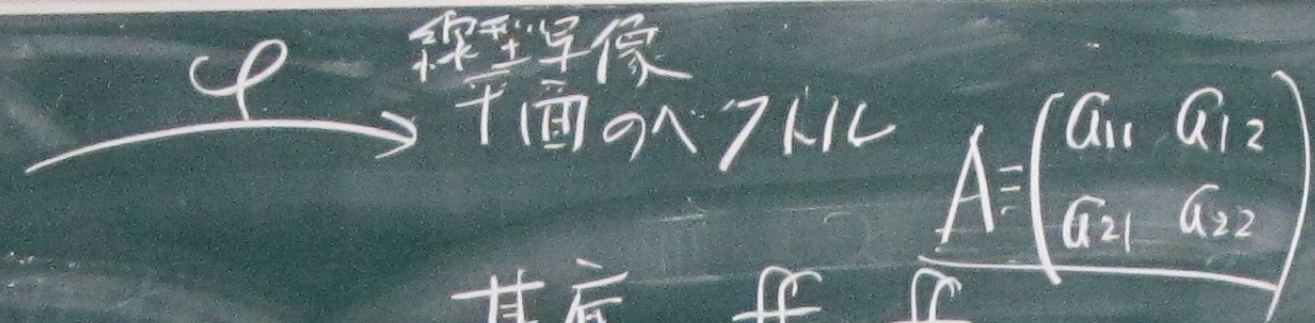 φ
線型写像
平面のベクトル
A≡(a₁₁ a₁₂
a₂₁ a₂₂)
基底